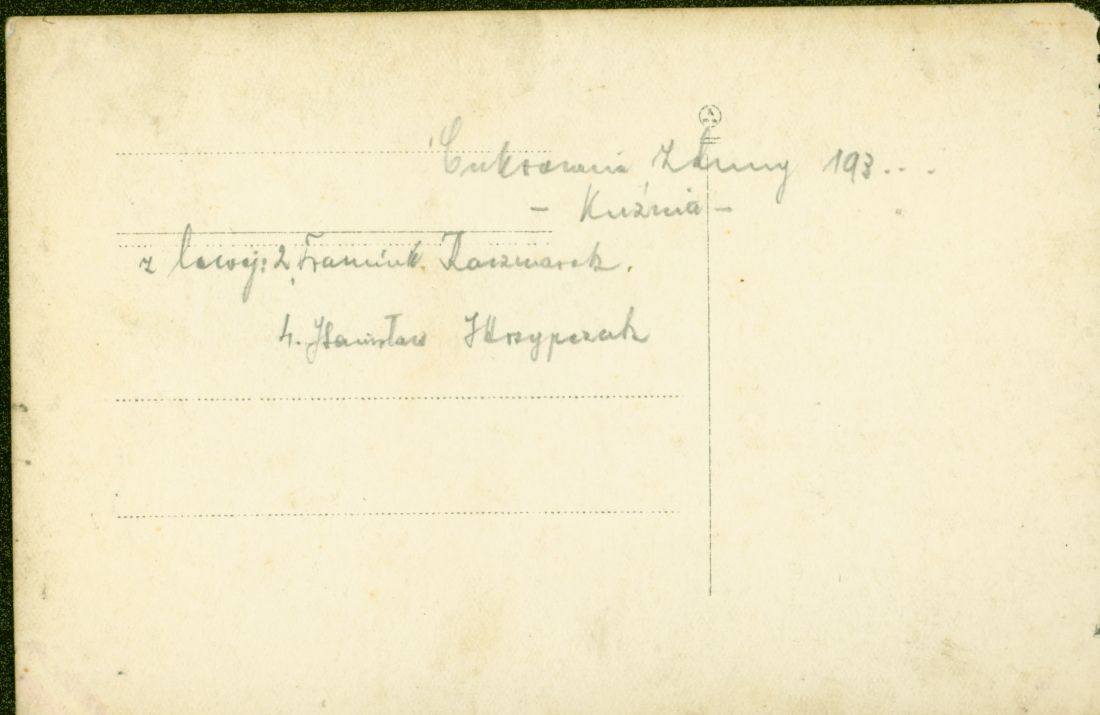 Cukrownia Żnin 193...
- Kuźnia -
z lewej: 2. Franciszek Kaczmarek.
4. Stanisław Skrzypczak